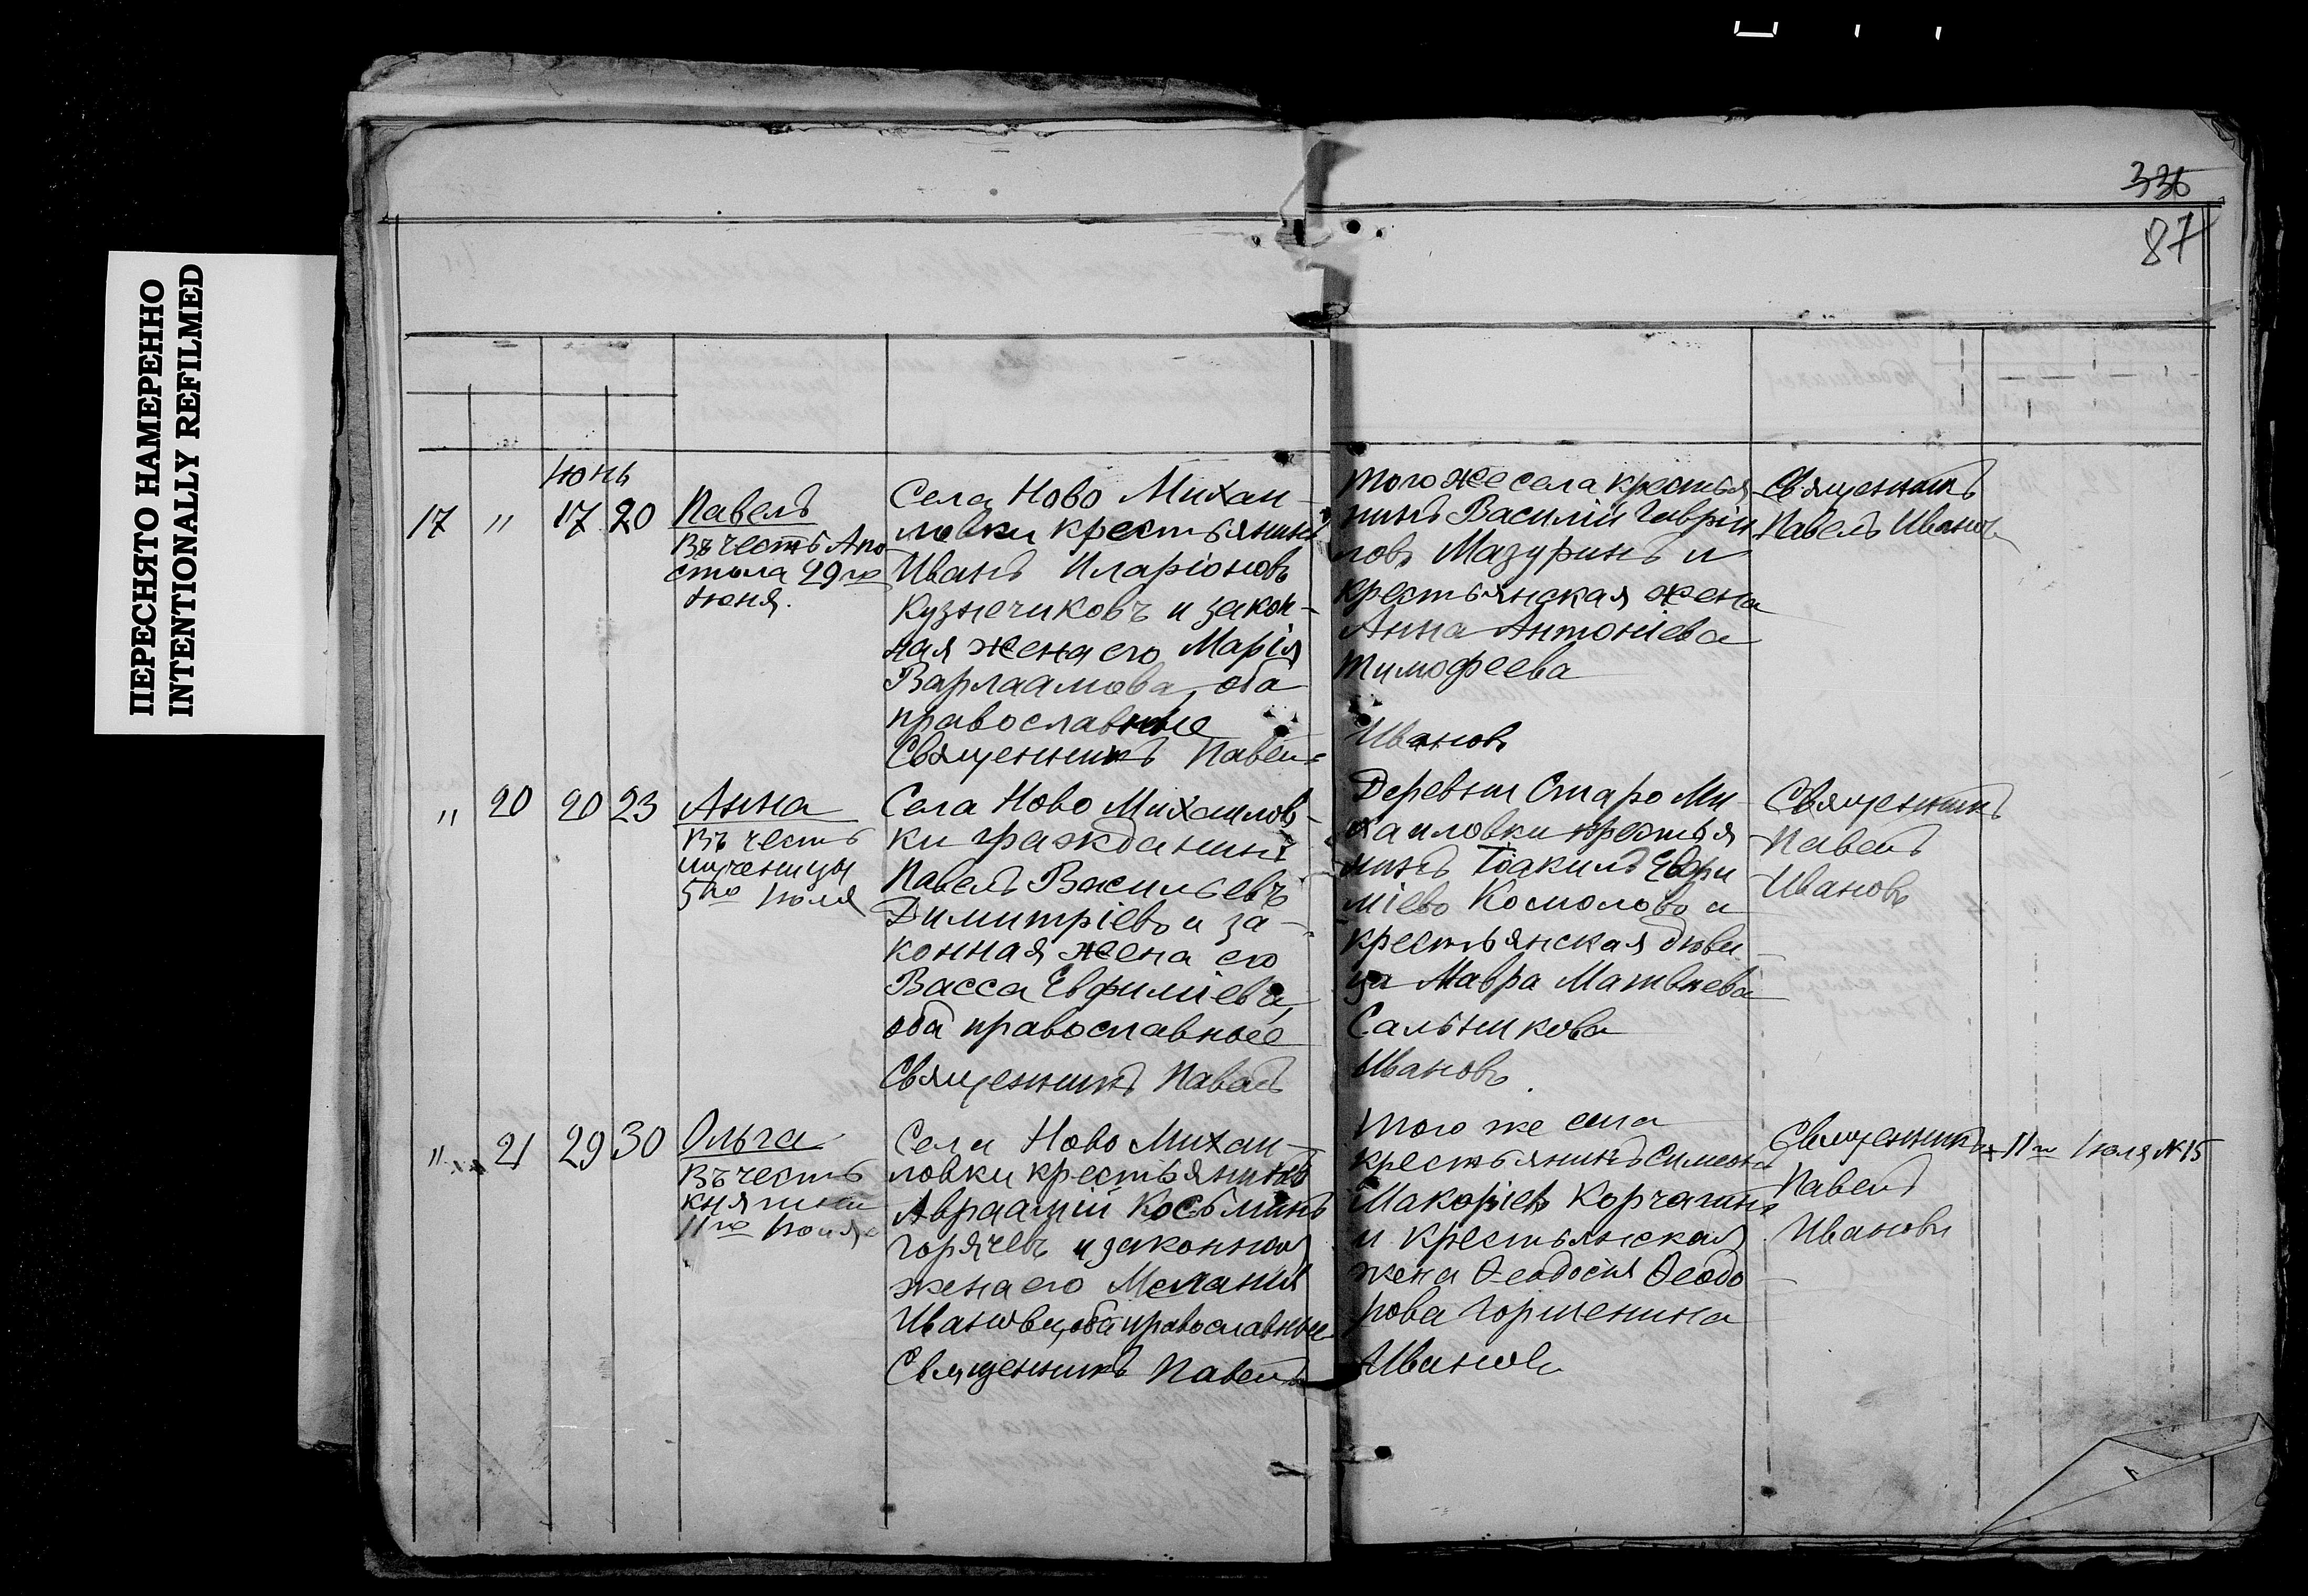 ПЕРЕСНЯТО НАМЕРЕННО
INTENTIONALLY REFILMED
336
87
Июнь
17 " 17 20
Павелъ
Въ честь Апо
стола 29го
Июня.
Села Ново Михаи-
ловки крестьянинъ
Иванъ Иларіоновъ
Кузнечиковъ и закон-
ная жена его Марія
Варлаамова, оба
православные
Священникъ Павелъ
того же села крестья
нинъ Василій Гаврiи
ловъ Мазуринъ и
крестьянская жена
Анна Антоніева
Тимофеева
Ивановъ
Священникъ
Павелъ Ивановъ
" 20 20 23
Анна
Въ честь
мученицы
5го Июля
Села Ново Михаилов-
ки гражданинъ
Павелъ Васильевъ
Димитріевъ и за-
конная жена его
Васса Евфиміева,
оба православные
Священникъ Павелъ
Деревни Старо Ми-
хаиловки крестья
нинъ Іоакимъ Евфи
міевъ Комоловъ и
крестьянская дѣви
ца Мавра Матвѣева
Сальникова
Ивановъ.
Священникъ
Павелъ
Ивановъ
" 21 29 30
Ольга
Въ честь
княгини
11го Июля
Села Ново Михаи-
ловки крестьянинъ
Авраамій Косьминъ
Горячевъ и законная
жена его Меланія
Иванова, оба православные
Священникъ Павелъ
того же села
крестьянинъ Симеонъ
Макаріевъ Корчагинъ
и крестьянская
жена Ѳеодосія Ѳеодо-
рова Горшенина
Ивановъ
Священникъ
Павелъ
Ивановъ
+ 11го Июля № 15